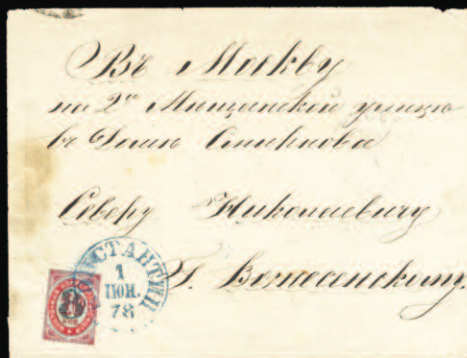 Въ Москву
на 2ой Мищанской улицѣ
въ Домѣ Смирнова
Северу Николаевичу
Г. Вознесенскому.
СТАНТИН
1
ІЮН.
78
8